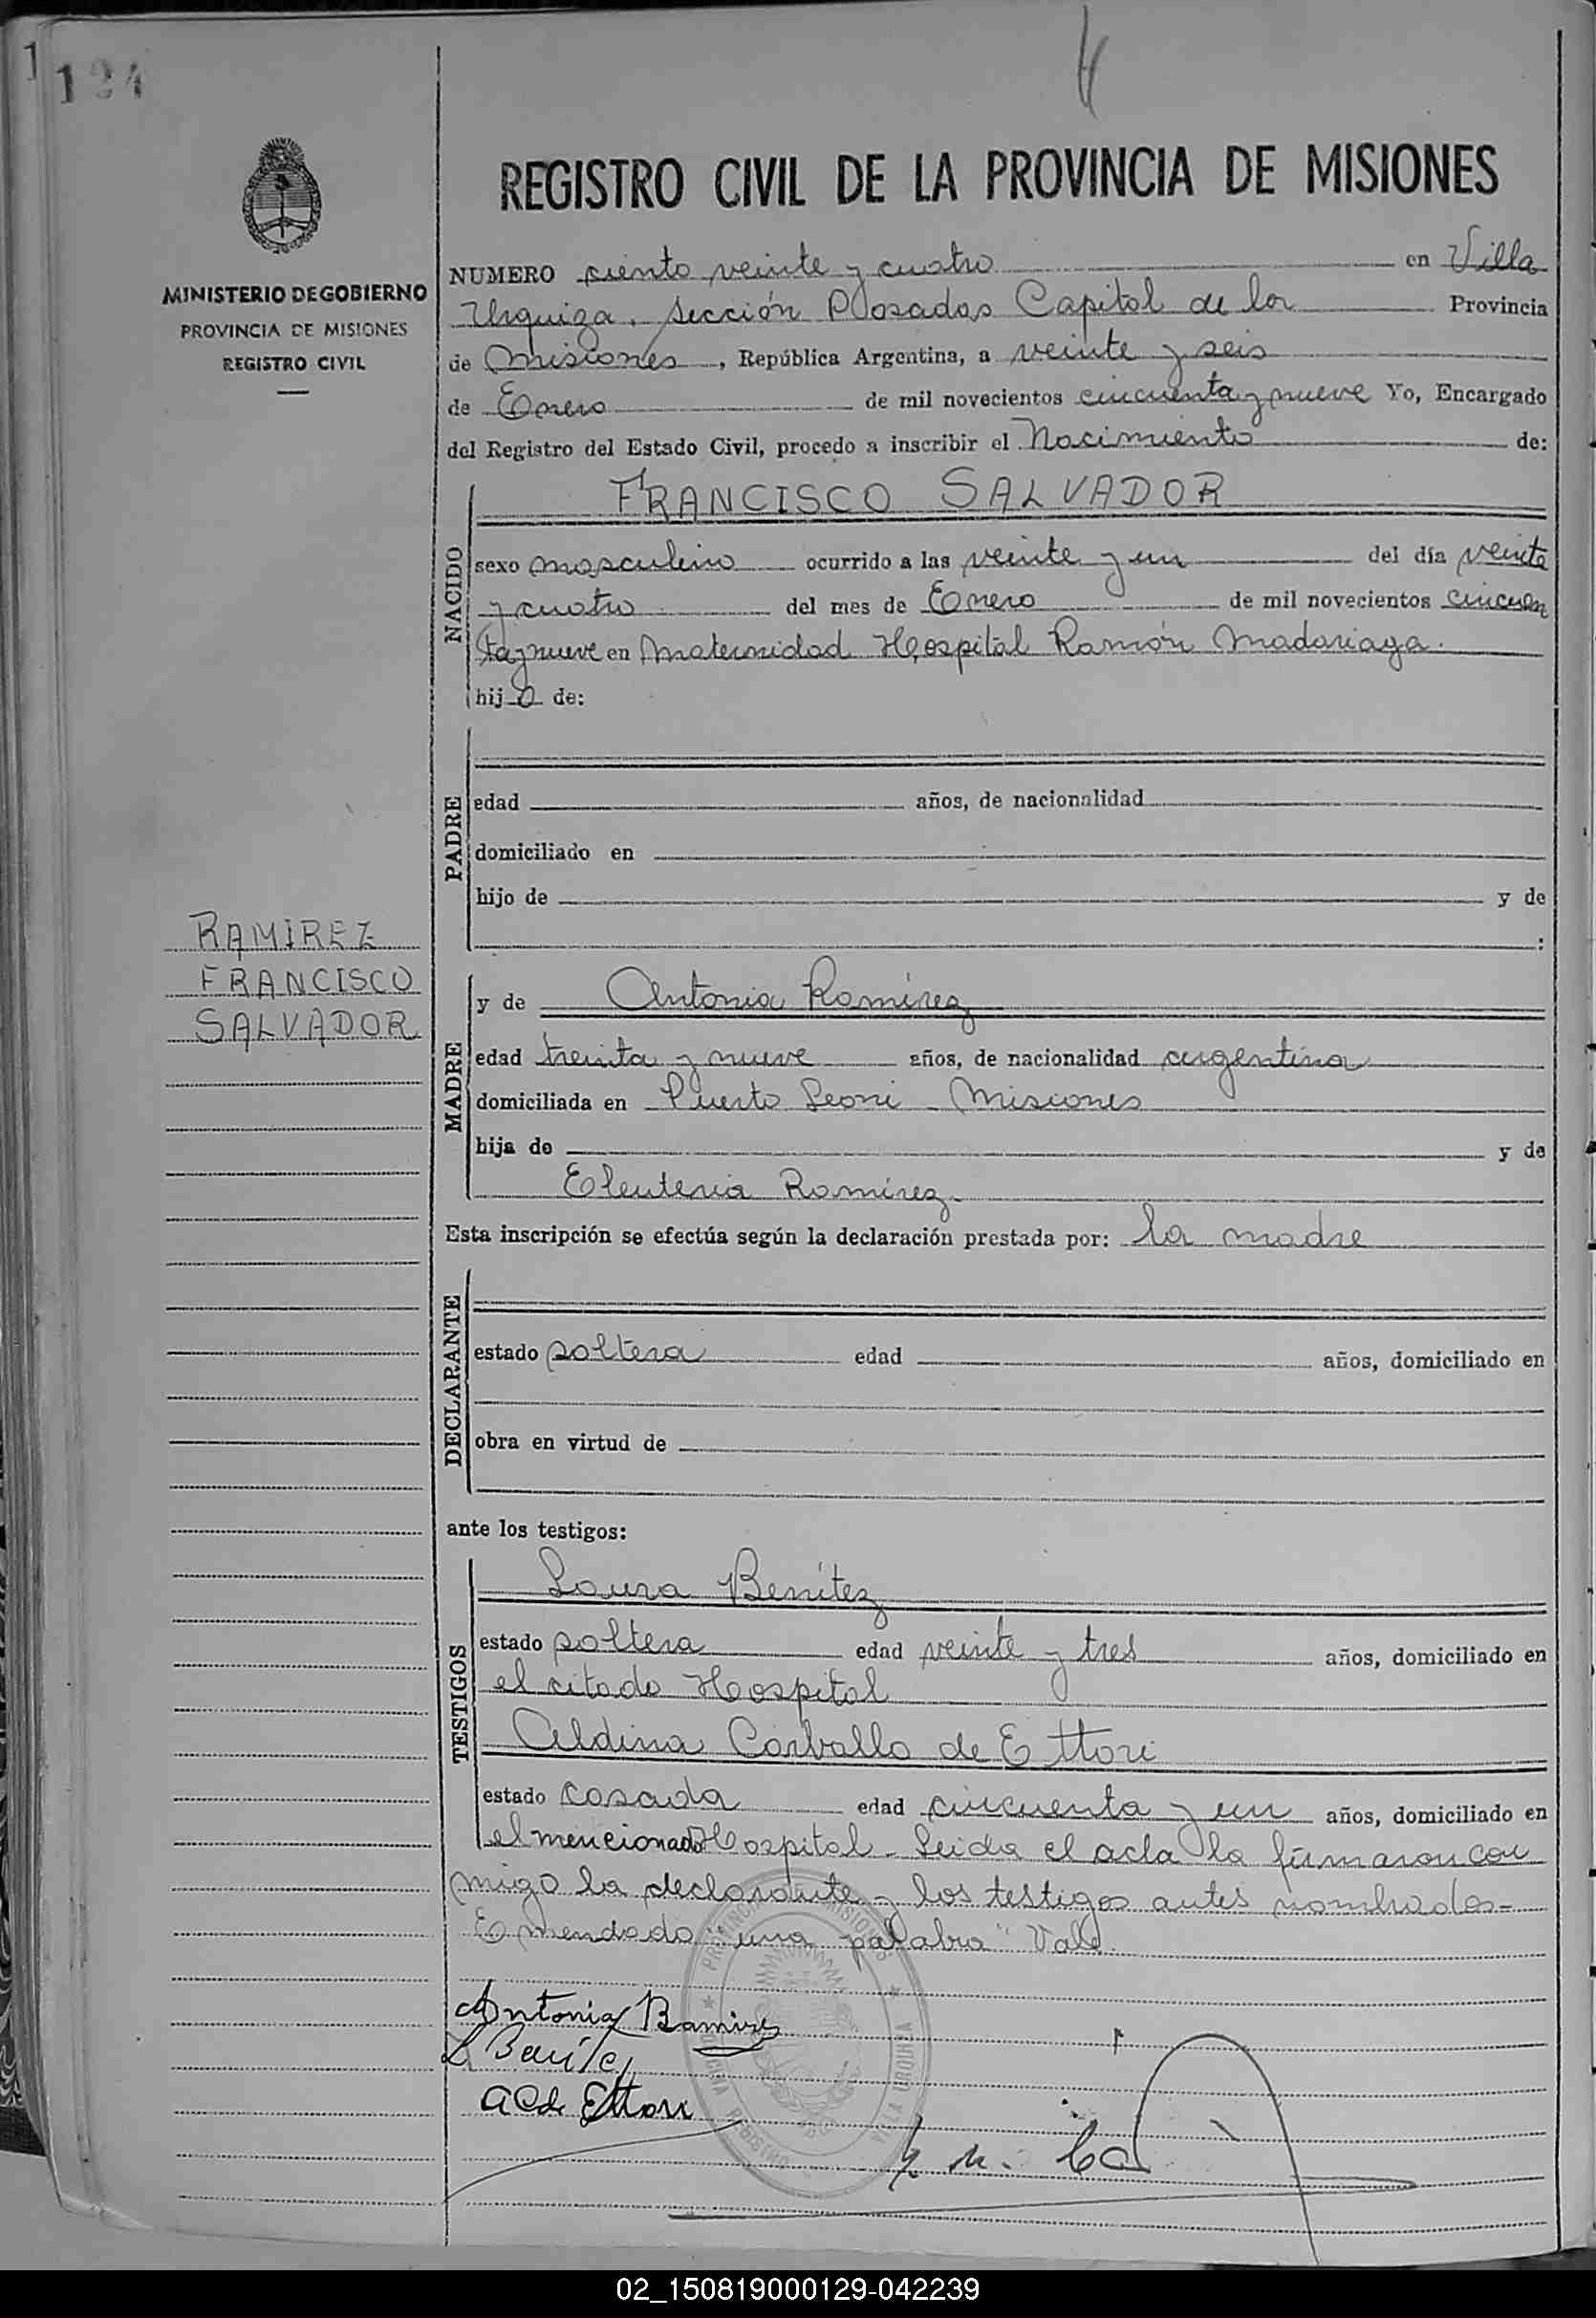 124
4
MINISTERIO DE GOBIERNO
PROVINCIA DE MISIONES
REGISTRO CIVIL
REGISTRO CIVIL DE LA PROVINCIA DE MISIONES
NUMERO ciento veinte y cuatro en Villa
Urquiza, Sección Posadas Capital de la Provincia
de Misiones, República Argentina, a veinte y seis
de Enero de mil novecientos cincuenta y nueve Yo, Encargado
del Registro del Estado Civil, procedo a inscribir el Nacimiento de:
NACIDO
FRANCISCO SALVADOR
sexo masculino ocurrido a las veinte y un del día veinte
y cuatro del mes de Enero de mil novecientos cincuen
ta y nueve en Maternidad Hospital Ramón Madariaga.
hijo de:
PADRE
edad años, de nacionalidad
domiciliado en
hijo de y de
:
RAMIREZ
FRANCISCO
SALVADOR
MADRE
y de Antonia Ramírez
edad treinta y nueve años, de nacionalidad argentina
domiciliada en Puerto Leoni - Misiones
hija de y de
Eleuteria Ramírez.
Esta inscripción se efectúa según la declaración prestada por: la madre
DECLARANTE
estado soltera edad años, domiciliado en
obra en virtud de
ante los testigos:
TESTIGOS
Laura Benítez
estado soltera edad veinte y tres años, domiciliado en
el citado Hospital
Aldina Carballo de Ettori
estado casada edad cincuenta y un años, domiciliado en
el mencionado Hospital - Leida el acta la firmaron con
migo la declarante y los testigos antes nombrados-
Emendado "una palabra" Vale.
Antonia Ramires
L Benítez
A C de Ettori
PROVINCIA MISIONES
VILLA URQUIZA
02_150819000129-042239